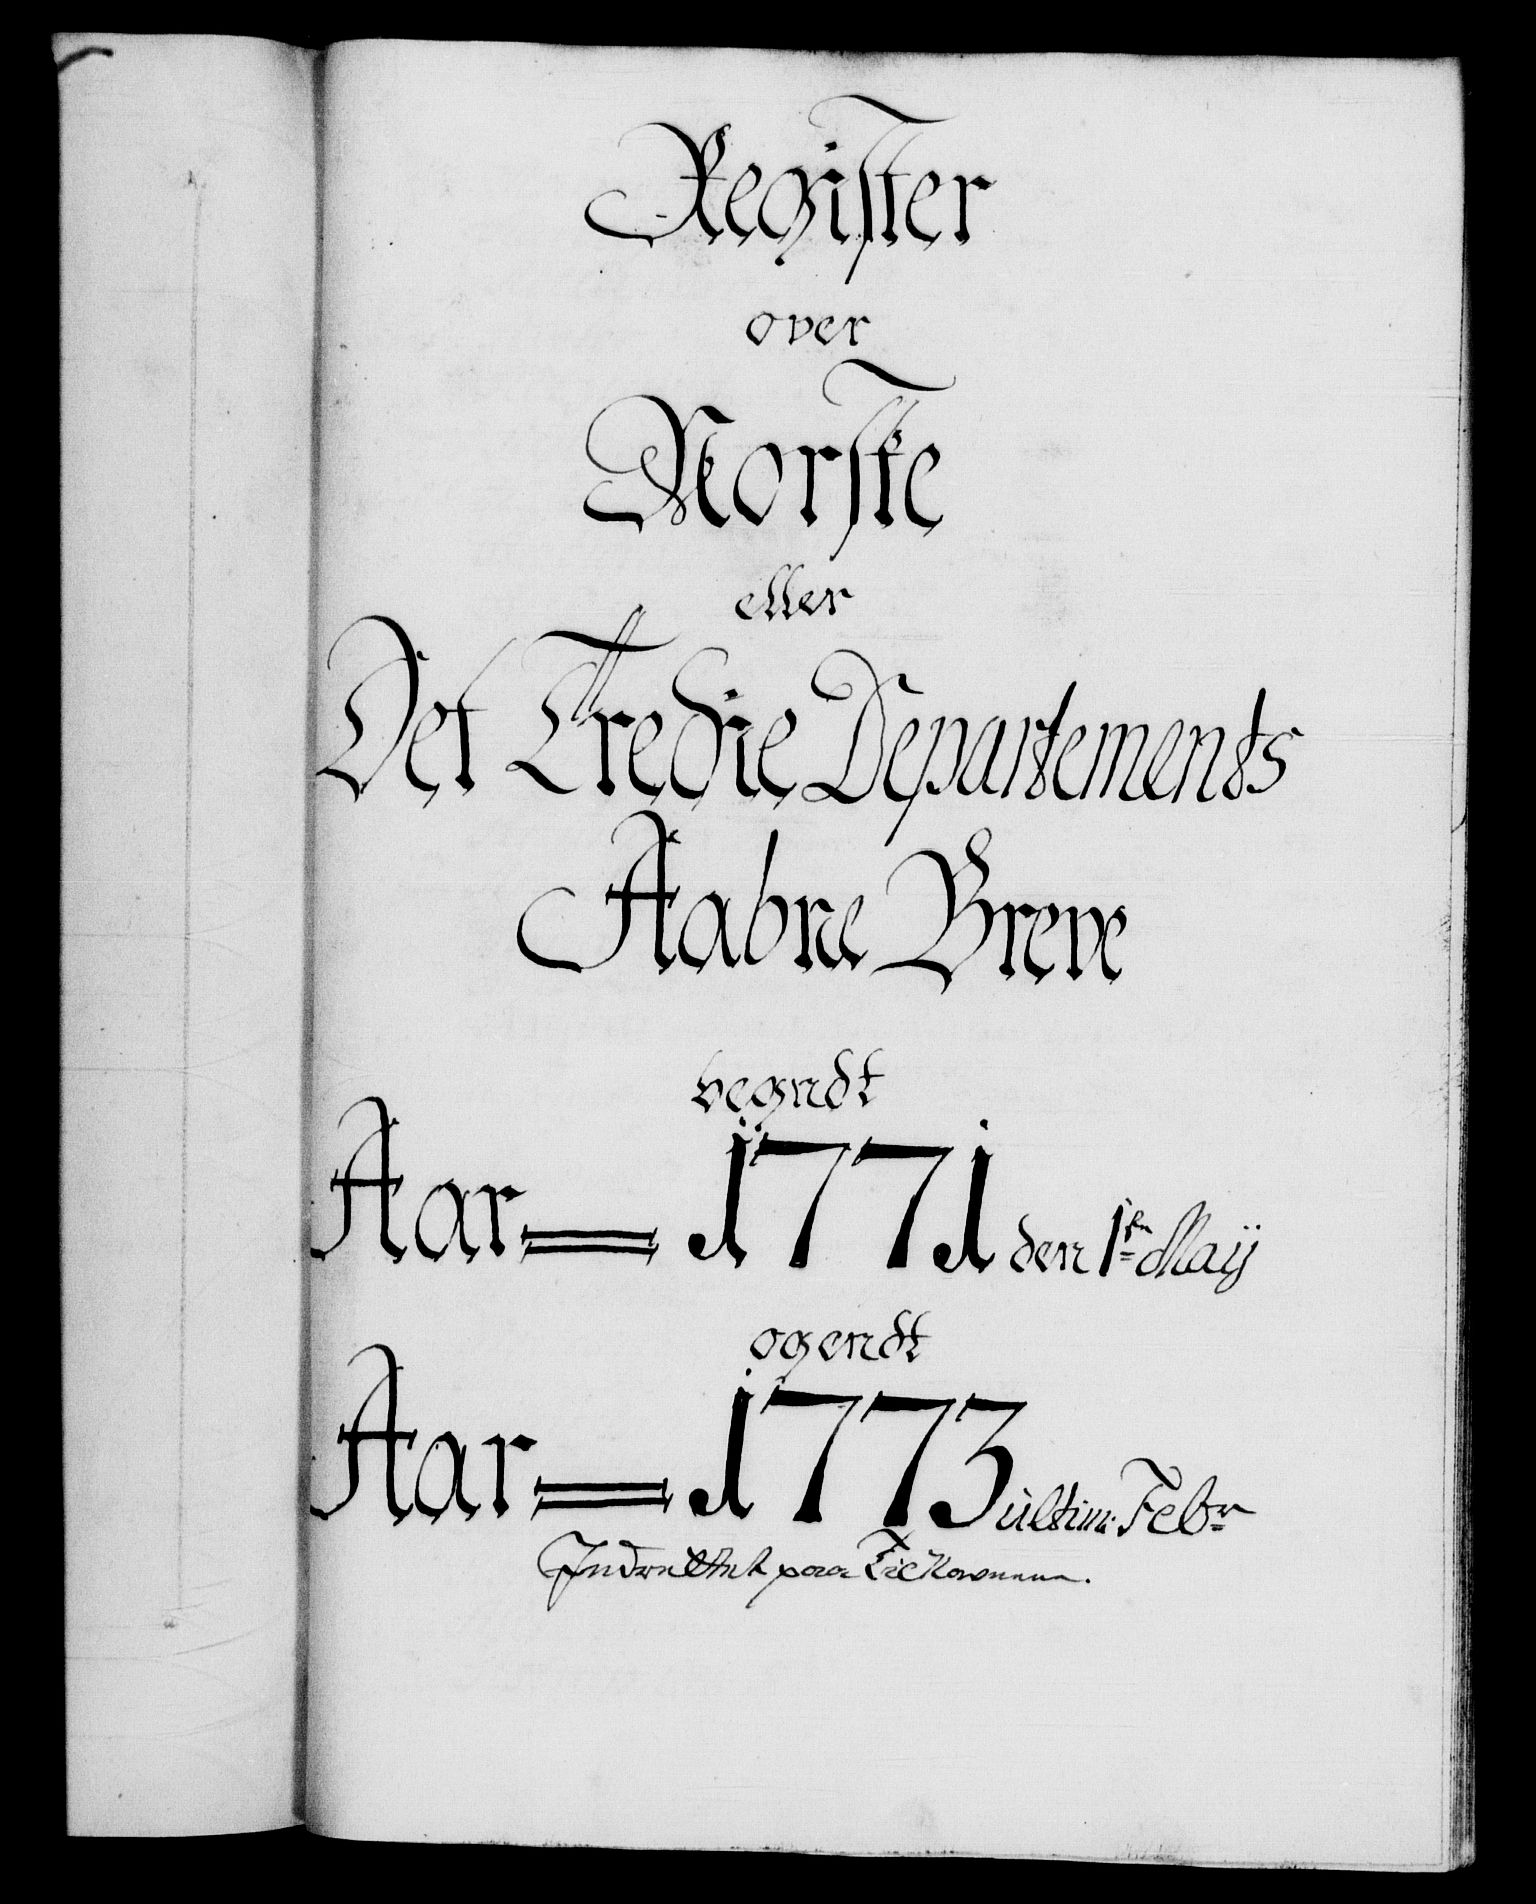 Register
over
Norske
eller
Det Tredie Departements
Aabne Breve
begÿndt
Aar 1771 den 1te Maÿ
og endt
Aar 1773 ultim: Febr